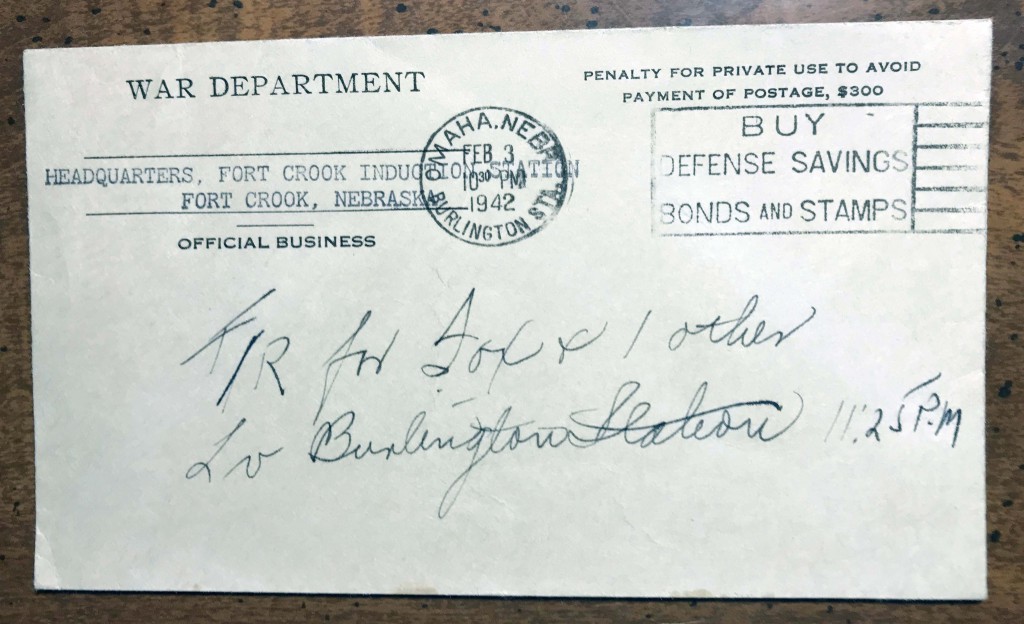 WAR DEPARTMENT
PENALTY FOR PRIVATE USE TO AVOID
PAYMENT OF POSTAGE, $300
HEADQUARTERS, FORT CROOK INDUCTION STATION
FORT CROOK, NEBRASKA
OFFICIAL BUSINESS
OMAHA, NEBR.
FEB 3
10 30 PM
1942
BURLINGTON STA.
BUY
DEFENSE SAVINGS
BONDS AND STAMPS
F/R for Fox & 1 other
Lv Burlington Station 11:25 P.M